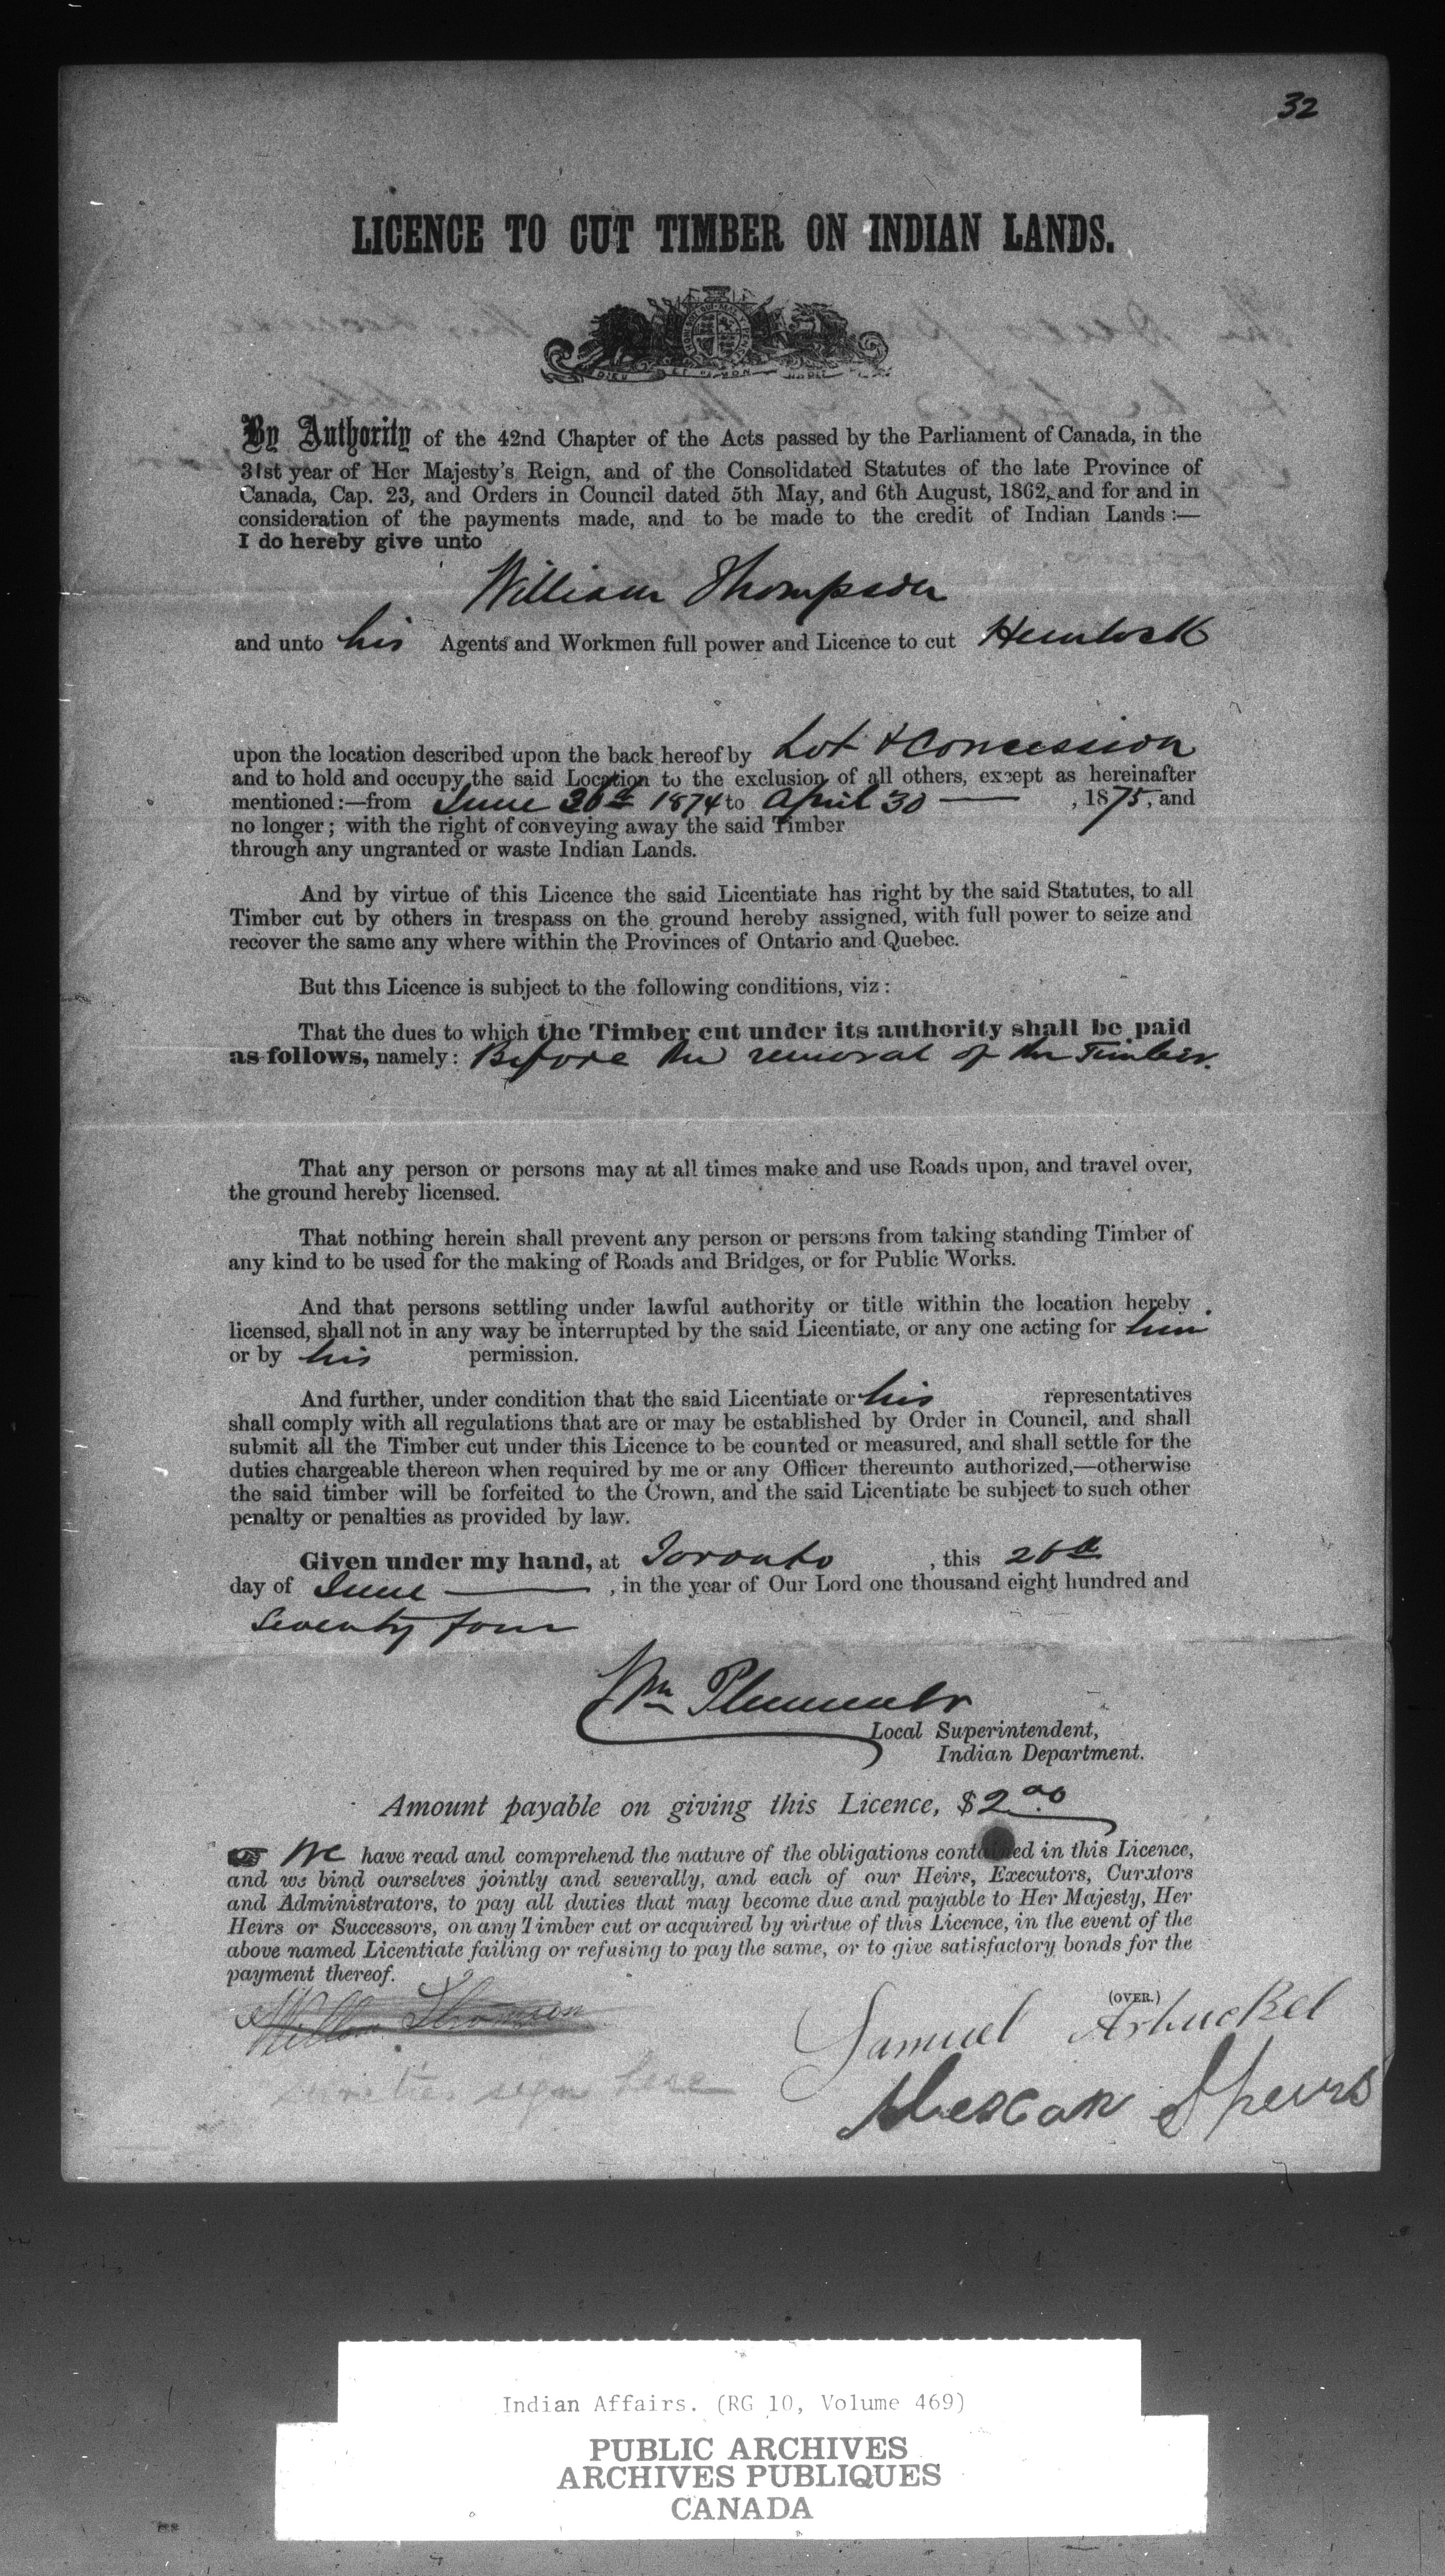 32
LICENCE TO CUT TIMBER ON INDIAN LANDS.
DIEU ET MON DROIT
By Authority of the 42nd Chapter of the Acts passed by the Parliament of Canada, in the
31st year of Her Majesty's Reign, and of the Consolidated Statutes of the late Province of
Canada, Cap. 23, and Orders in Council dated 5th May, and 6th August, 1862, and for and in
consideration of the payments made, and to be made to the credit of Indian Lands :—
I do hereby give unto
William Thompson
and unto his Agents and Workmen full power and Licence to cut Hemlock
upon the location described upon the back hereof by Lot & Concession
and to hold and occupy the said Location to the exclusion of all others, except as hereinafter
mentioned :—from June 26th 1874 to April 30 — , 1875, and
no longer ; with the right of conveying away the said Timber
through any ungranted or waste Indian Lands.
And by virtue of this Licence the said Licentiate has right by the said Statutes, to all
Timber cut by others in trespass on the ground hereby assigned, with full power to seize and
recover the same any where within the Provinces of Ontario and Quebec.
But this Licence is subject to the following conditions, viz :
That the dues to which the Timber cut under its authority shall be paid
as follows, namely : Before the removal of the Timber.
That any person or persons may at all times make and use Roads upon, and travel over,
the ground hereby licensed.
That nothing herein shall prevent any person or persons from taking standing Timber of
any kind to be used for the making of Roads and Bridges, or for Public Works.
And that persons settling under lawful authority or title within the location hereby
licensed, shall not in any way be interrupted by the said Licentiate, or any one acting for him
or by his permission.
And further, under condition that the said Licentiate or his representatives
shall comply with all regulations that are or may be established by Order in Council, and shall
submit all the Timber cut under this Licence to be counted or measured, and shall settle for the
duties chargeable thereon when required by me or any Officer thereunto authorized,—otherwise
the said timber will be forfeited to the Crown, and the said Licentiate be subject to such other
penalty or penalties as provided by law.
Given under my hand, at Toronto , this 26th
day of June — , in the year of Our Lord one thousand eight hundred and
Seventy four
Wm Plummer
Local Superintendent,
Indian Department.
Amount payable on giving this Licence, $2.00
We have read and comprehend the nature of the obligations contained in this Licence,
and we bind ourselves jointly and severally, and each of our Heirs, Executors, Curators
and Administrators, to pay all duties that may become due and payable to Her Majesty, Her
Heirs or Successors, on any Timber cut or acquired by virtue of this Licence, in the event of the
above named Licentiate failing or refusing to pay the same, or to give satisfactory bonds for the
payment thereof.
(OVER.)
Samuel Arbuckel
sureties sign here
Speirs
Indian Affairs. (RG 10, Volume 469)
PUBLIC ARCHIVES
ARCHIVES PUBLIQUES
CANADA